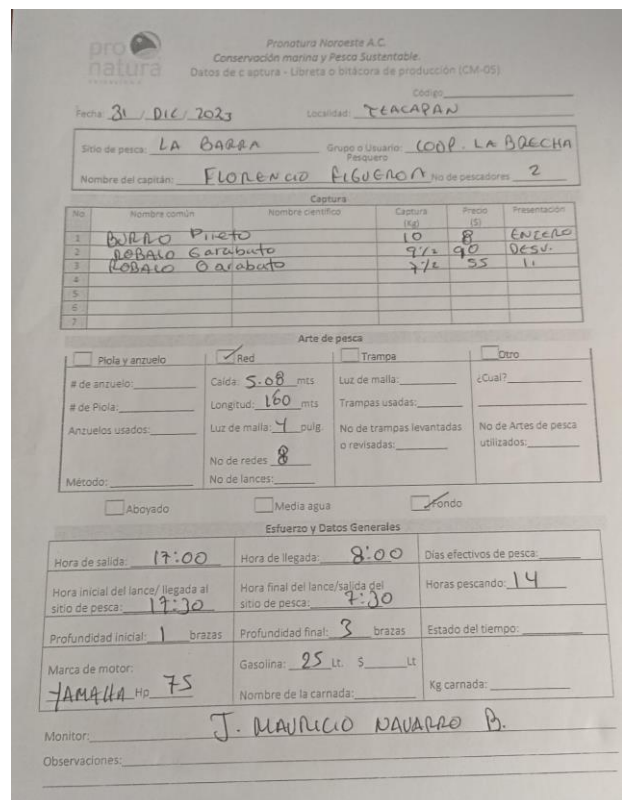 pro natura
Pronatura Noroeste A.C.
Conservación marina y Pesca Sustentable.
Datos de captura - Libreta o bitácora de producción (CM-05)
Código
Fecha: 31 / DIC / 2023 Localidad: TEACAPAN
Sitio de pesca: LA BARRA Grupo o Usuario: COOP. LA BRECHA
Pesquero
Nombre del capitán: FLORENCIO FIGUEROA No de pescadores 2
Captura
No Nombre común Nombre científico Captura (Kg) Precio ($) Presentación
1 BURRO Prieto 10 8 ENTERO
2 ROBALO Garabato 9 1/2 90 DESV.
3 ROBALO Garabato 7 1/2 55 11
4
5
6
7
Arte de pesca
Piola y anzuelo Red Trampa Otro
# de anzuelo: Caida: 5.08 mts Luz de malla: ¿Cual?
# de Piola: Longitud: 160 mts Trampas usadas:
Anzuelos usados: Luz de malla: 4 pulg. No de trampas levantadas o revisadas: No de Artes de pesca utilizados:
No de redes 8
Método: No de lances:
Aboyado Media agua Fondo
Esfuerzo y Datos Generales
Hora de salida: 17:00 Hora de llegada: 8:00 Días efectivos de pesca:
Hora inicial del lance/ llegada al sitio de pesca: 17:30 Hora final del lance/salida del sitio de pesca: 7:30 Horas pescando: 14
Profundidad inicial: 1 brazas Profundidad final: 3 brazas Estado del tiempo:
Marca de motor: YAMAHA Hp 75 Gasolina: 25 Lt. $ Lt
Nombre de la carnada: Kg carnada:
Monitor: J. MAURICIO NAVARRO B.
Observaciones: